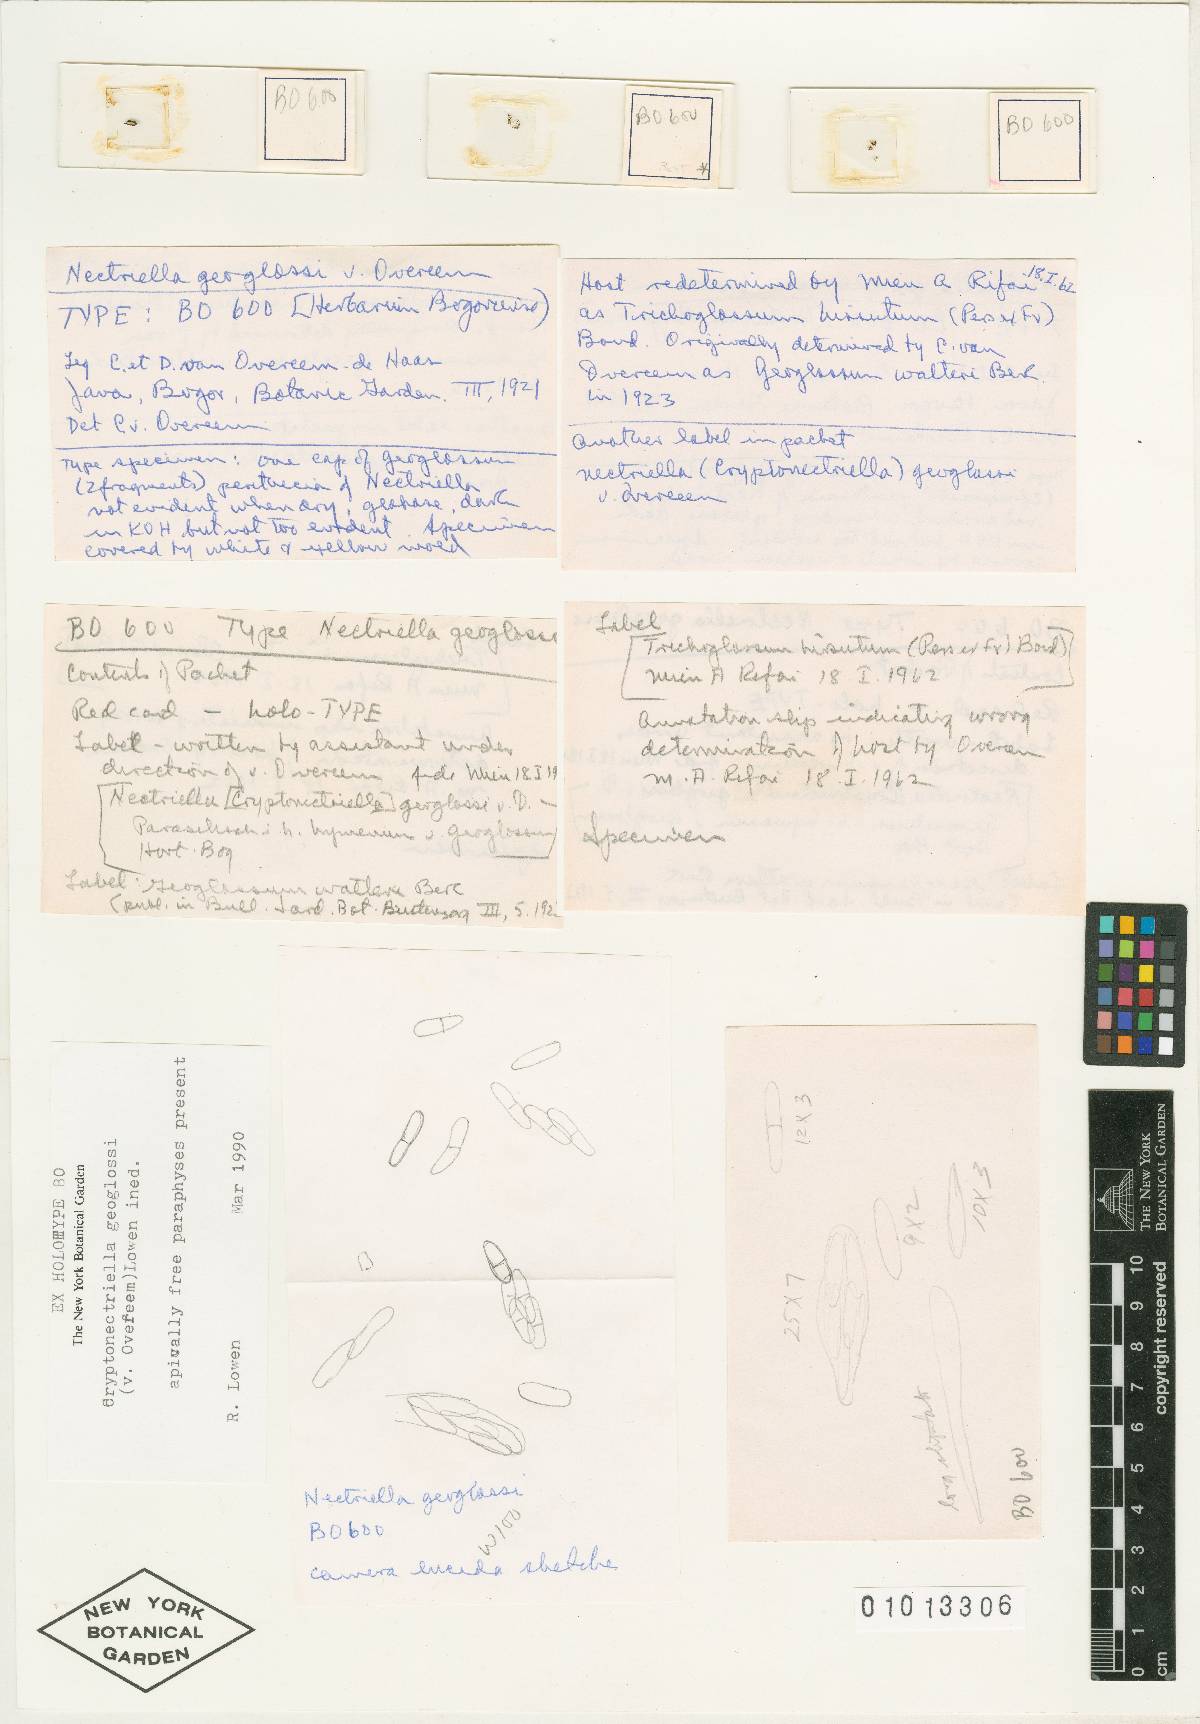 BO 600
BO 600
*
BO 600
Nectriella geoglossi v. Overeem
TYPE : BO 600 [Herbarium Bogoriense)
Leg C. et D. van Overeem-de Haas
Java, Bogor, Botanic Garden. III, 1921
Det C v. Overeem
Type specimen: one cap of Geoglossum
(2 fragments) perithecia of Nectriella
not evident when dry, dark
in KOH but not too evident. Specimen
covered by white & yellow mold
Host redetermined by Mien A. Rifai 18.I.62
as Trichoglossum hirsutum (Pers ex Fr)
Boud. Originally determined by C. van
Overeem as Geoglossum walteri Berk.
in 1923
Another label in packet
Nectriella (Cryptonectriella) geoglossi
v. Overeem
BO 600 Type Nectriella geoglossi
Contents of Packet
Red card - holo-TYPE
Label - written by assistant under
direction of v. Overeem fide Mien 18 I 19
[Nectriella [Cryptonectriella] geoglossi v. O. -
h. hymenium v. Geoglossum
Hort. Bog
Label: Geoglossum walteri Berk
(publ. in Bull. Jard. Bot. Buitenzorg III, 5. 192
Label
[Trichoglossum hirsutum (Pers ex Fr) Boud]
Mien A Rifai 18 I. 1962
Annotation slip indicating wrong
determination of host by Overeem
M. A. Rifai 18. I. 1962
Specimen
EX HOLOTYPE BO
The New York Botanical Garden
Cryptonectriella geoglossi
(v. Overeem)Lowen ined.
apically free paraphyses present
R. Lowen Mar 1990
Nectriella geoglossi
BO 600
W100
camera lucida sketche
12 X 3
9 X 2
10 X 3
25 X 7
BO 600
THE NEW YORK
BOTANICAL GARDEN
copyright reserved
10
9
8
7
6
5
4
3
2
1
0
cm
NEW YORK
BOTANICAL
GARDEN
01013306